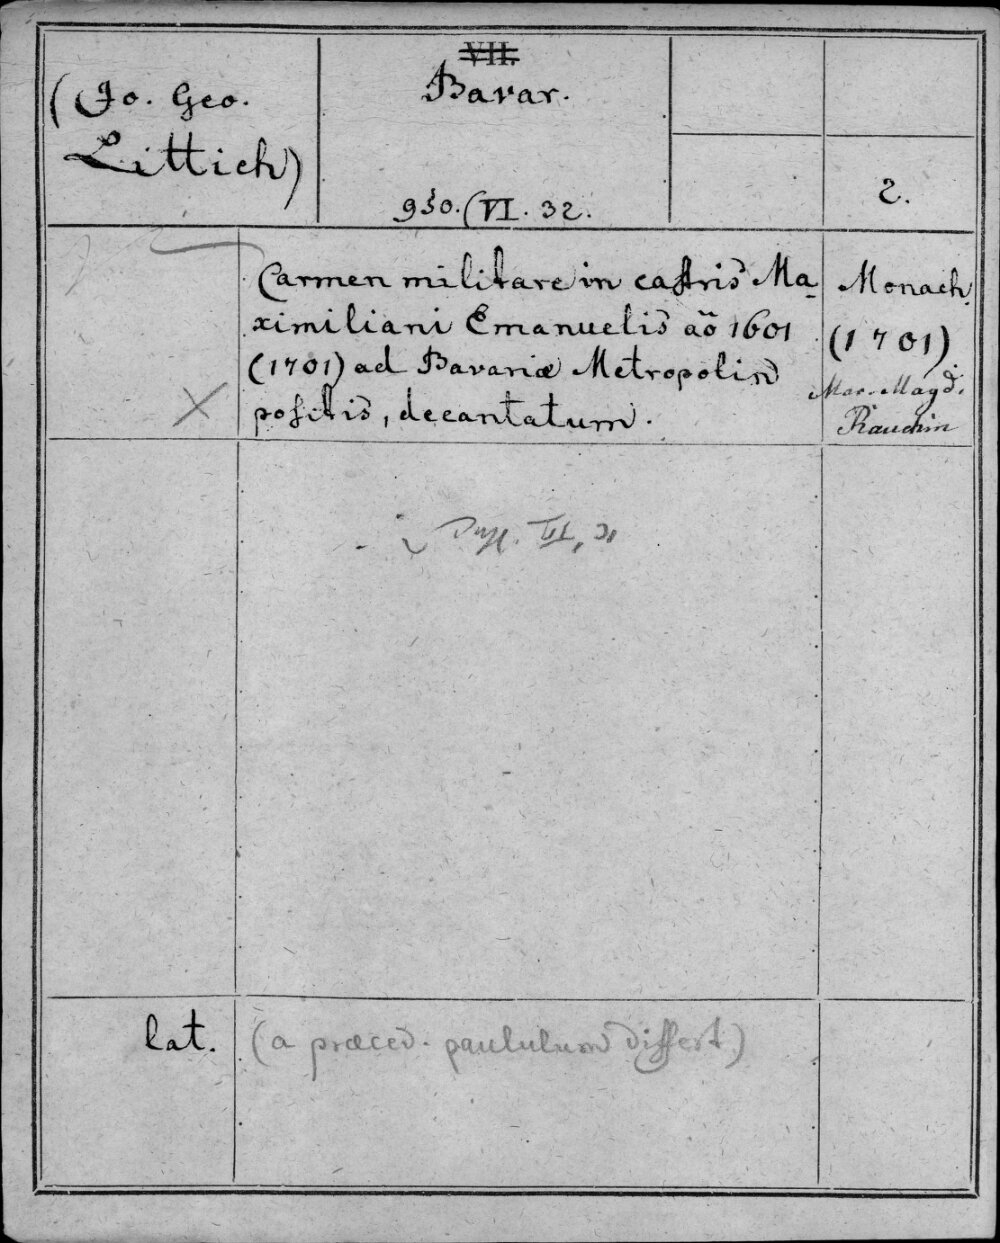 (Jo. Geo.
Littich)
VII.
Bavar.
980. (VI. 32.
2.
Carmen militare in castris Ma-
ximiliani Emanuelis aö 1601
(1701) ad Bavariæ Metropolin
positis, decantatum.
Monach.
(1701)
Mar. Magd.
Rauchin
lat.
(a præced. paululum differt)